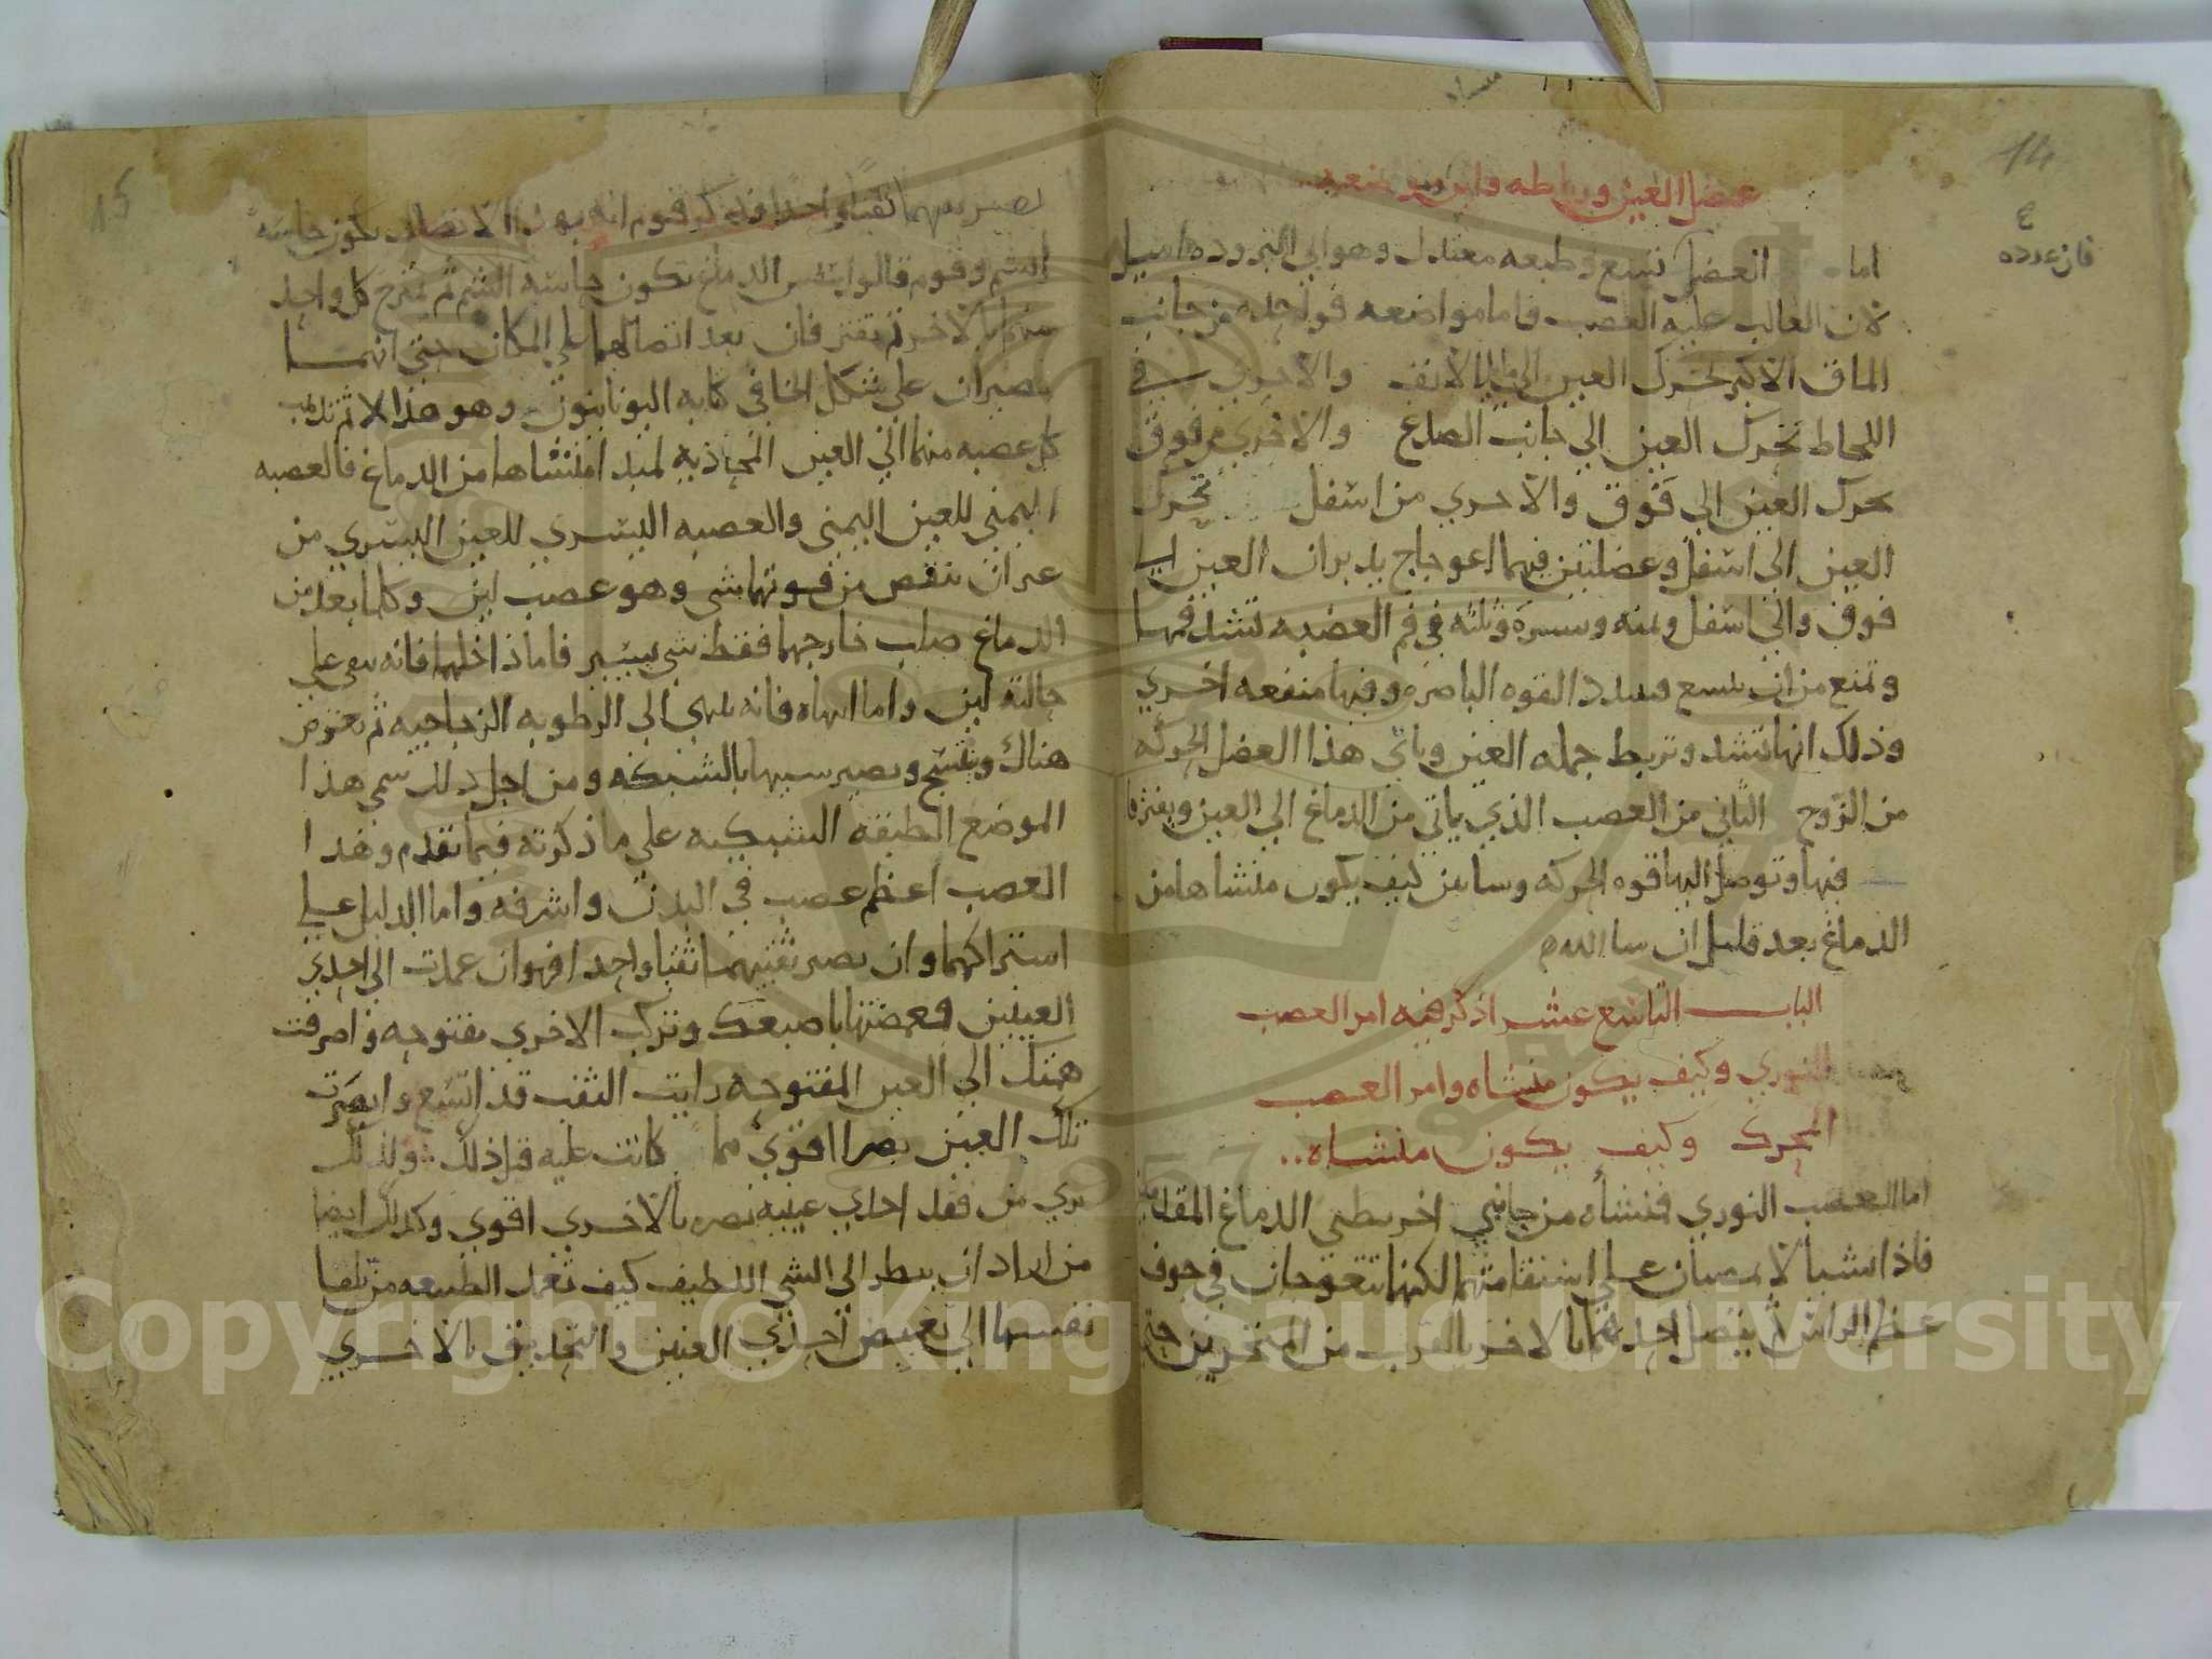 14
عضل العين ورباطه واين مواضعه
ع
فان عدده
اما العضل تسع وطبعه معتدل وهو الي البروده اميل
لان الغالب عليه العصب فاما مواضعه فواحده من جانب
الماق الاكبر تحرك العين الي الانف والاخري في
اللحاظ تحرك العين الي جانب الصدغ والاخري من فوق
تحرك العين الي فوق والاخري من اسفل تحرك
العين الي اسفل وعضلتين فيهما اعوجاج يديران العين الي
فوق والي اسفل ويمنه ويسره وثلثه في فم العصبه تشد فمها
وتمنع من ان يتسع فيتبدد القوه الباصره وفيها منفعه اخري
وذلك انها تشد وتربط جمله العين وياتي هذا العضل الحركه
من الزوج الثاني من العصب الذي ياتي من الدماغ الي العين ويفترقا
فيها وتوصل اليها قوه الحركه وسابين كيف يكون منشاها من
الدماغ بعد قليل ان سا الله
الباب التاسع عشر اذكر فيه امر العصب
النوري وكيف يكون منشاه وامر العصب
المحرك وكيف يكون منشاه
اما العصب النوري فمنشأه من جانبي اخر بطني الدماغ المقدمين
فاذا نشيا لا يمضيان علي استقامتهما لكنهما يتعوجان في جوف
عظم الراس ثم يتصل احدهما بالاخر بالقرب من المنخرين حتي
15
يصير ثقبهما ثقبا واحدا فذكر قوم انه بهذا الاتصال تكون حاسه
الشم وقوم قالوا بنفس الدماغ تكون حاسه الشم ثم يخرج كل واحد
منهما بالاخر ثم يفترقان بعد اتصالهما علي المكان حتي انهما
يصيران علي شكل الخا في كتابه اليونانيون وهو هذا ثم تذهب
كل عصبه منهما الي العين المحاذيه لمبدا منشاها من الدماغ فالعصبه
اليمني للعين اليمني والعصبه اليسري للعين اليسري من
غير ان ينقص من قوتهما شي وهو عصب لين وكلما بعد من
الدماغ صلب خارجهما فقط شي يسير فاما داخلهما فانه يبقي علي
حالته لين واما انتهاه فانه ينتهي الي الرطوبه الزجاجيه ثم يعرض
هناك وينتسج ويصير شبيها بالشبكه ومن اجل ذلك سمي هذا
الموضع الطبقه الشبكيه علي ما ذكرته فيما تقدم وهذا
العصب اعظم عصب في البدن واشرفه واما الدليل علي
اشتراكهما وان يصير ثقبيهما ثقبا واحدا فهو ان عمدت الي احدي
العينين فغمضتها باصبعك وتركت الاخري مفتوحه وصرفت
همتك الي العين المفتوحه رايت الثقب قد اتسع وابصرت
تلك العين بصرا اقوي مما كانت عليه قبل ذلك ولذلك
تري من فقد احدي عينيه بصره بالاخري اقوي وكذلك ايضا
من اراد ان ينظر الي الشي اللطيف كيف تعمد الطبيعه من تلقا
نفسها الي تغميض احدي العينين والتحديق بالاخري
Copyright © King Saud University
1957